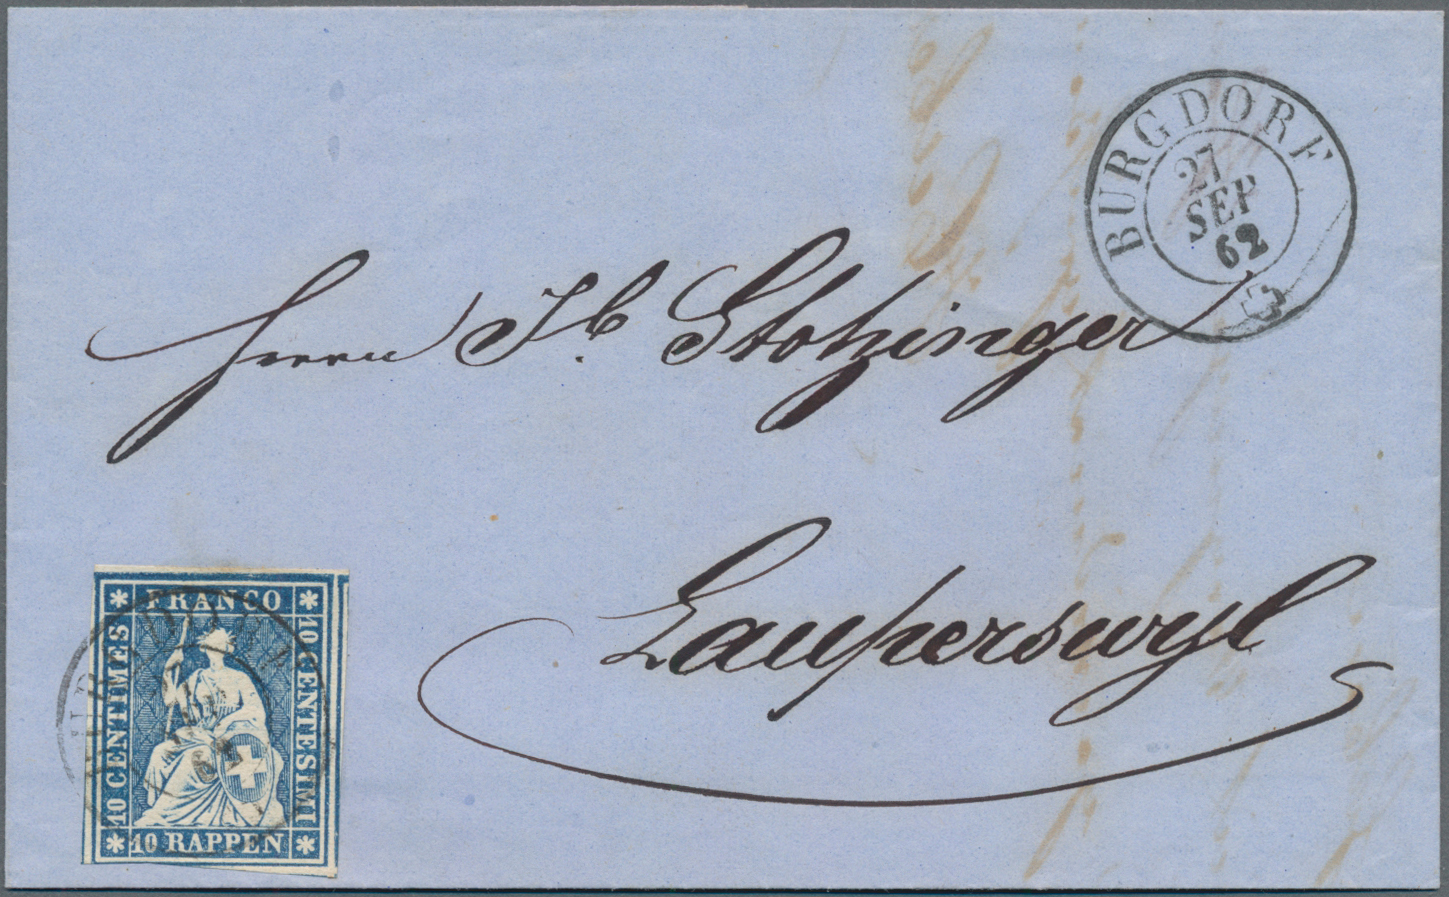 BURGDORF
27
SEP
62
Herrn Jb. Stotzinger
Lauperswyl
FRANCO
10 CENTIMES
10 CENTESIMI
10 RAPPEN